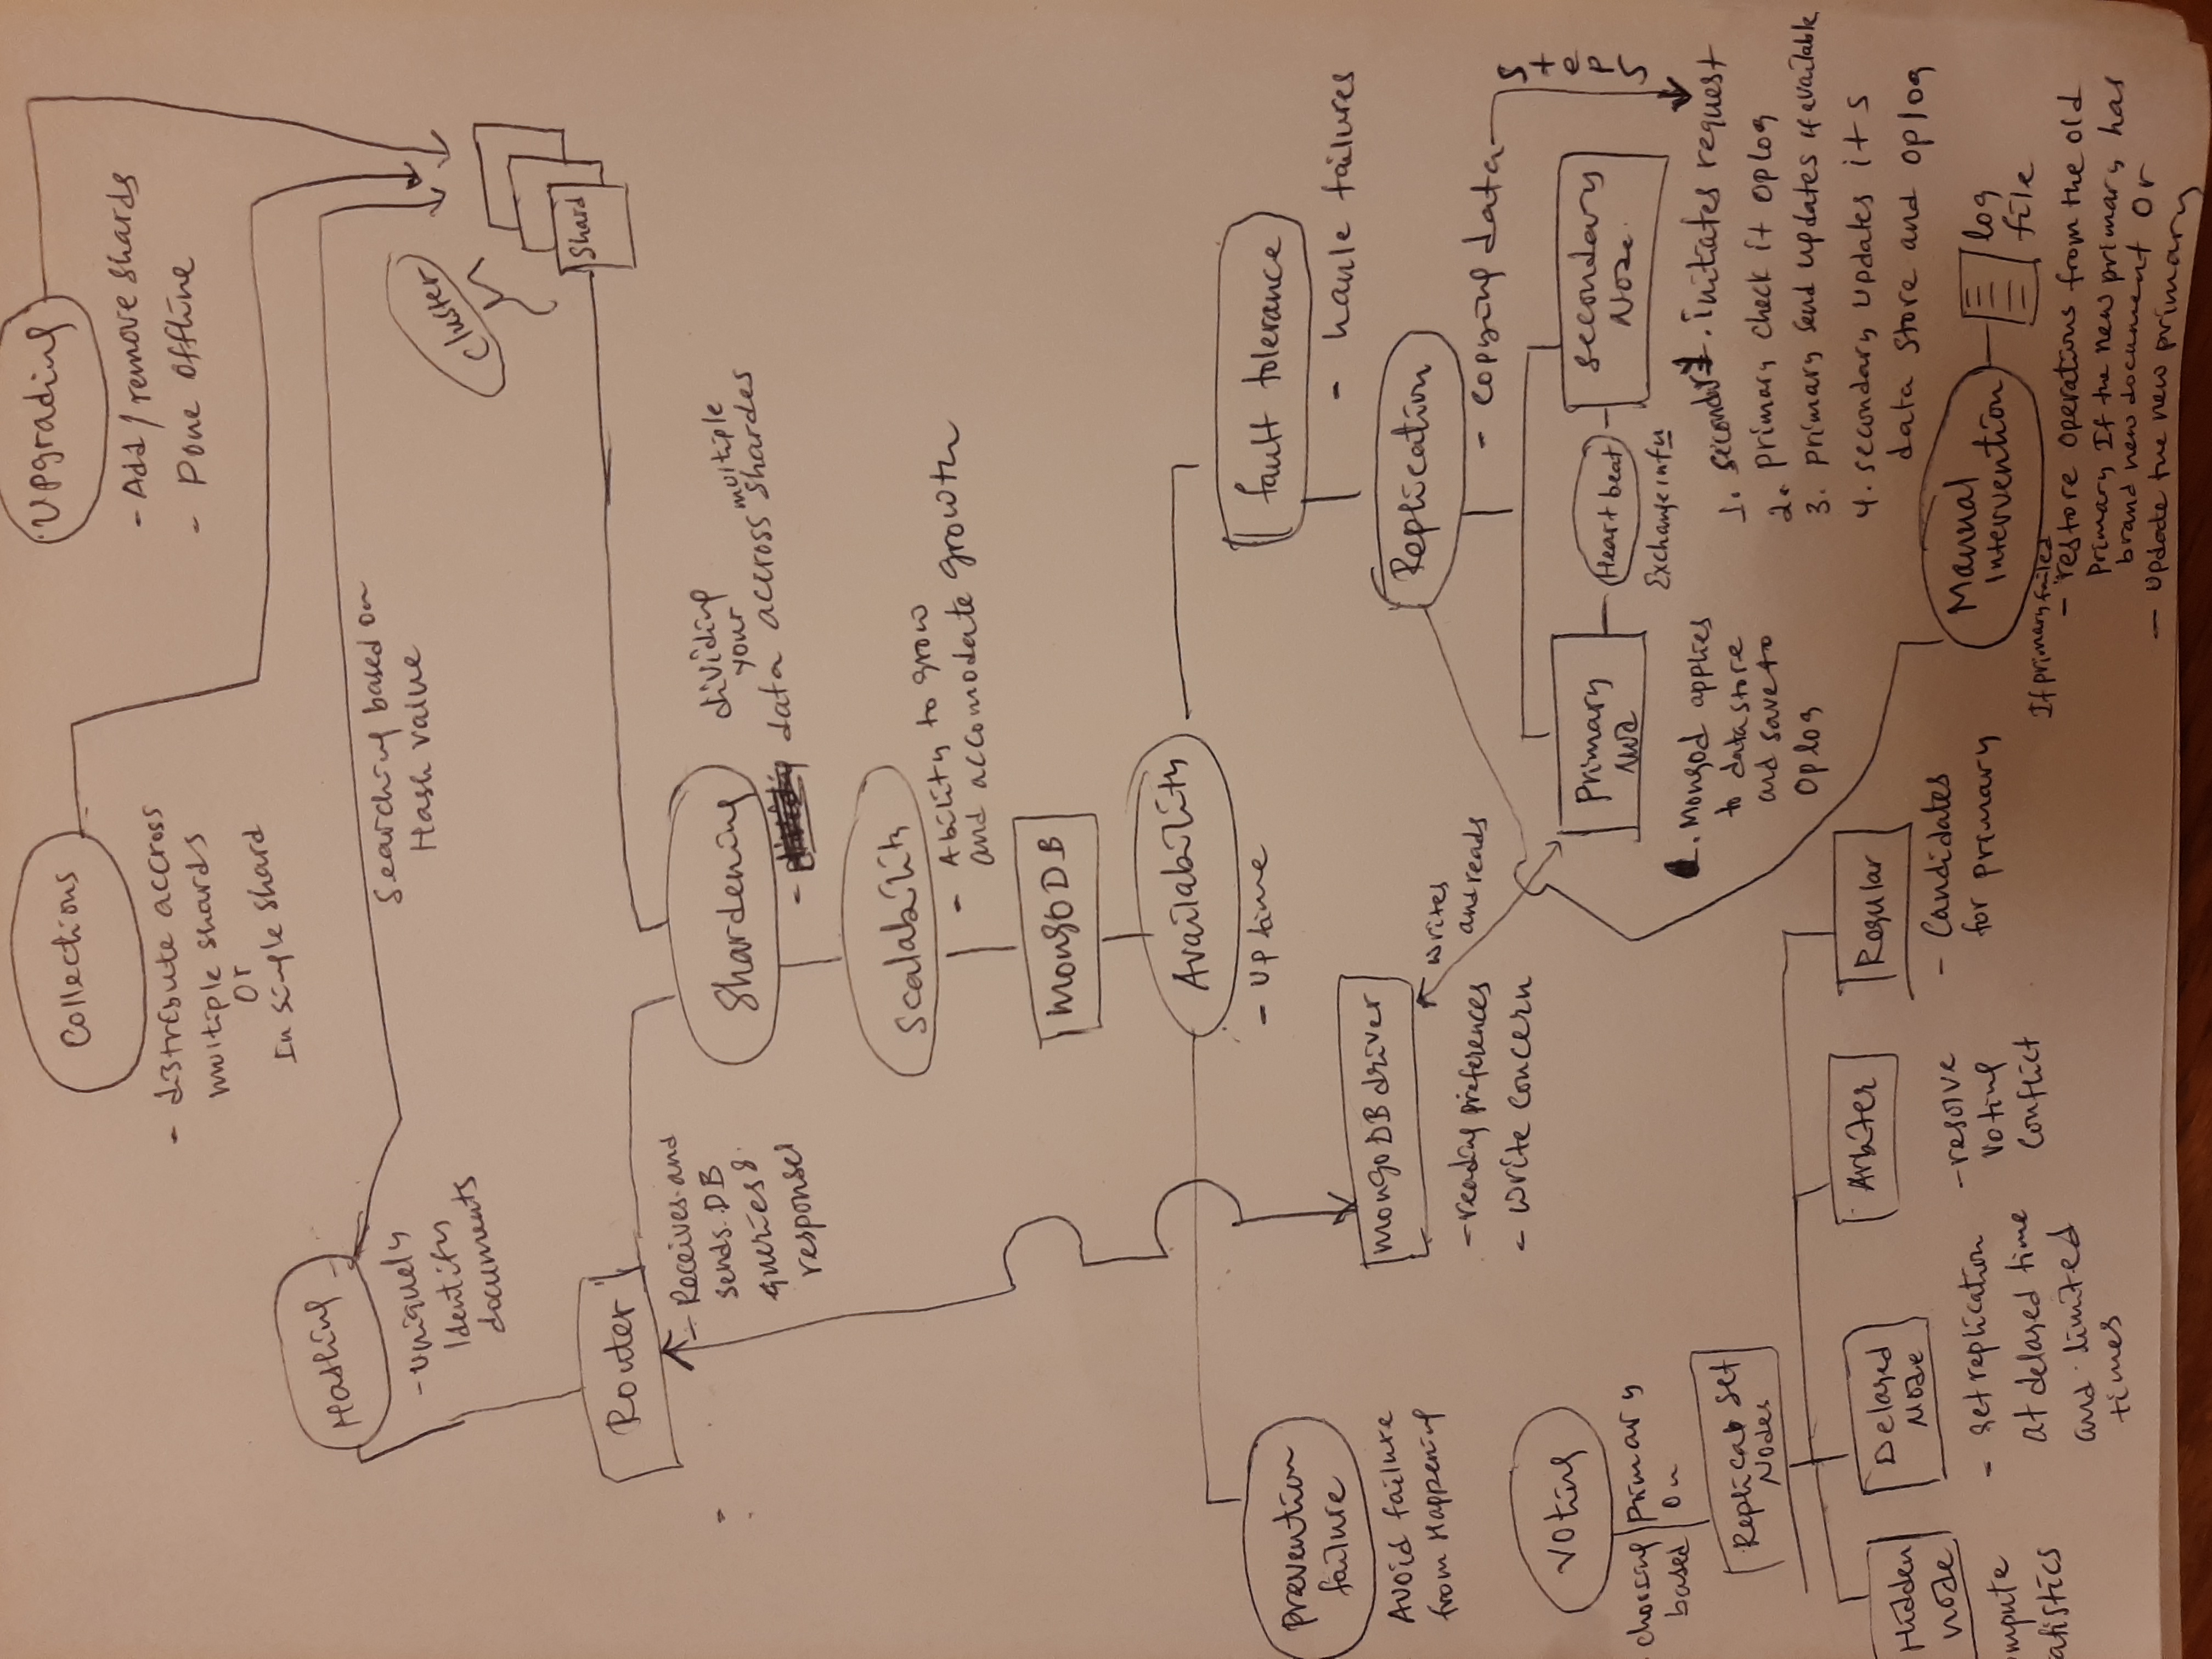 Collections
- distribute accross
multiple shards
or
In single shard
Upgrading
- Add / remove shards
- Done offline
Hashing
- Uniquely
Identify
documents
Searching based on
Hash value
Cluster
Shard
Router
- Receives and
sends DB
queries &
responses
Shardening
dividing
your
- data accross multiple shardes
Scalability
- Ability to grow
and accomodate growth
MongoDB
Availability
- Uptime
Prevention
failure
Avoid failure
from Happening
fault tolerance
- hanle failures
MongoDB driver
- reading preferences
- write concern
writes
and reads
Replication
- copying data
Steps
Voting
choosing primary
based on
Replica set
Nodes
Primary
Heart beat
Exchange info
secondary
Node
1. Mongod applies
to data store
and save to
Oplog
1. secondary. initiates request
2. primary check it oplog
3. primary send updates if available
4. secondary updates its
data store and oplog
Hidden
node
mpute
atistics
Delayed
Node
- set replication
at delayed time
and limited
times
Arbiter
- resolve
voting
conflict
Regular
- Candidates
for primary
Manual
Intervention
log
file
If primary failed
- restore operations from the old
primary If the new primary has
brand new document or
- update the new primary